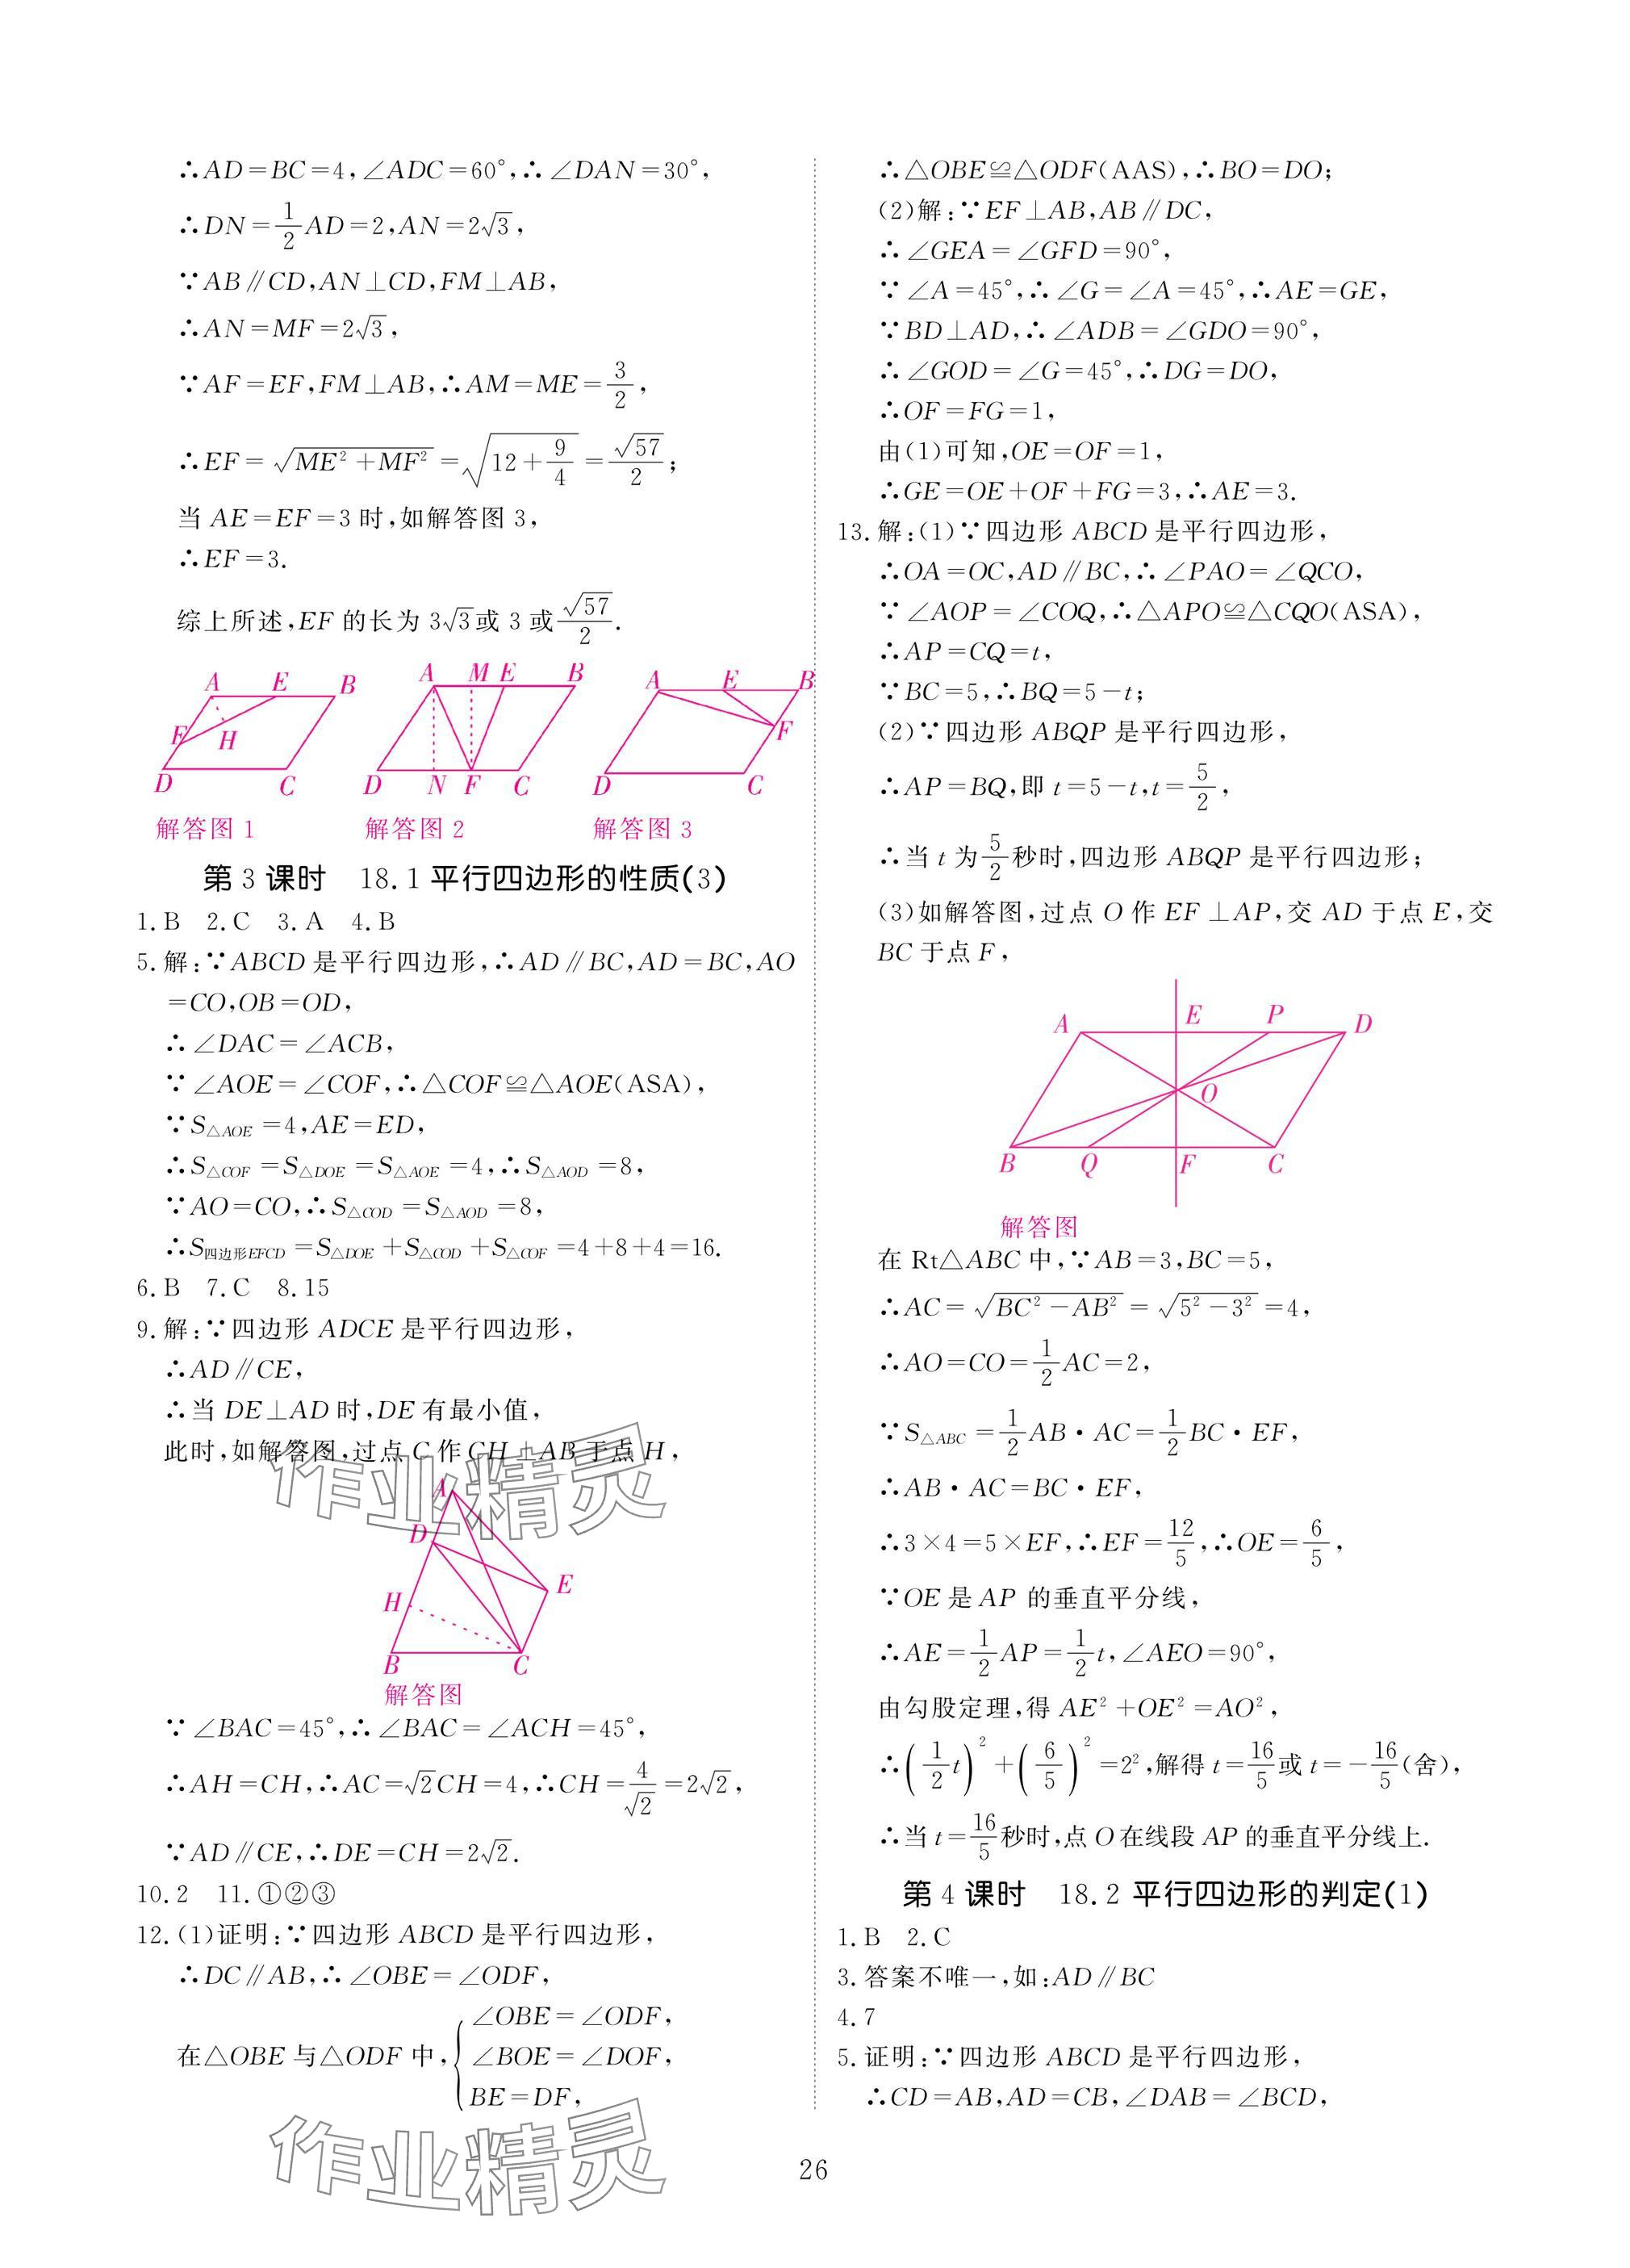 ∴AD=BC=4,∠ADC=60°,∴∠DAN=30°,
∴DN=1/2AD=2,AN=2√3,
∵AB∥CD,AN⊥CD,FM⊥AB,
∴AN=MF=2√3,
∵AF=EF,FM⊥AB,∴AM=ME=3/2,
∴EF=√(ME²+MF²)=√(12+9/4)=√57/2;
当AE=EF=3时,如解答图3,
∴EF=3.
综上所述,EF的长为3√3或3或√57/2.
A E B F H D C
A M E B D N F C
A E B F D C
解答图1 解答图2 解答图3
第3课时 18.1平行四边形的性质(3)
1.B 2.C 3.A 4.B
5.解:∵ABCD是平行四边形,∴AD∥BC,AD=BC,AO
=CO,OB=OD,
∴∠DAC=∠ACB,
∵∠AOE=∠COF,∴△COF≌△AOE(ASA),
∵S△AOE=4,AE=ED,
∴S△COF=S△DOE=S△AOE=4,∴S△AOD=8,
∵AO=CO,∴S△COD=S△AOD=8,
∴S四边形EFCD=S△DOE+S△COD+S△COF=4+8+4=16.
6.B 7.C 8.15
9.解:∵四边形ADCE是平行四边形,
∴AD∥CE,
∴当DE⊥AD时,DE有最小值,
此时,如解答图,过点C作CH⊥AB于点H,
作业精灵
A D E H B C
解答图
∵∠BAC=45°,∴∠BAC=∠ACH=45°,
∴AH=CH,∴AC=√2CH=4,∴CH=4/√2=2√2,
∵AD∥CE,∴DE=CH=2√2.
10.2 11.①②③
12.(1)证明:∵四边形ABCD是平行四边形,
∴DC∥AB,∴∠OBE=∠ODF,
∠OBE=∠ODF,
在△OBE与△ODF中,{∠BOE=∠DOF,
BE=DF,
作业精灵
∴△OBE≌△ODF(AAS),∴BO=DO;
(2)解:∵EF⊥AB,AB∥DC,
∴∠GEA=∠GFD=90°,
∵∠A=45°,∴∠G=∠A=45°,∴AE=GE,
∵BD⊥AD,∴∠ADB=∠GDO=90°,
∴∠GOD=∠G=45°,∴DG=DO,
∴OF=FG=1,
由(1)可知,OE=OF=1,
∴GE=OE+OF+FG=3,∴AE=3.
13.解:(1)∵四边形ABCD是平行四边形,
∴OA=OC,AD∥BC,∴∠PAO=∠QCO,
∵∠AOP=∠COQ,∴△APO≌△CQO(ASA),
∴AP=CQ=t,
∵BC=5,∴BQ=5-t;
(2)∵四边形ABQP是平行四边形,
∴AP=BQ,即t=5-t,t=5/2,
∴当t为5/2秒时,四边形ABQP是平行四边形;
(3)如解答图,过点O作EF⊥AP,交AD于点E,交
BC于点F,
A E P D O B Q F C
解答图
在Rt△ABC中,∵AB=3,BC=5,
∴AC=√(BC²-AB²)=√(5²-3²)=4,
∴AO=CO=1/2AC=2,
∵S△ABC=1/2AB·AC=1/2BC·EF,
∴AB·AC=BC·EF,
∴3×4=5×EF,∴EF=12/5,∴OE=6/5,
∵OE是AP的垂直平分线,
∴AE=1/2AP=1/2t,∠AEO=90°,
由勾股定理,得AE²+OE²=AO²,
∴(1/2t)²+(6/5)²=2²,解得t=16/5或t=-16/5(舍),
∴当t=16/5秒时,点O在线段AP的垂直平分线上.
第4课时 18.2平行四边形的判定(1)
1.B 2.C
3.答案不唯一,如:AD∥BC
4.7
5.证明:∵四边形ABCD是平行四边形,
∴CD=AB,AD=CB,∠DAB=∠BCD,
26